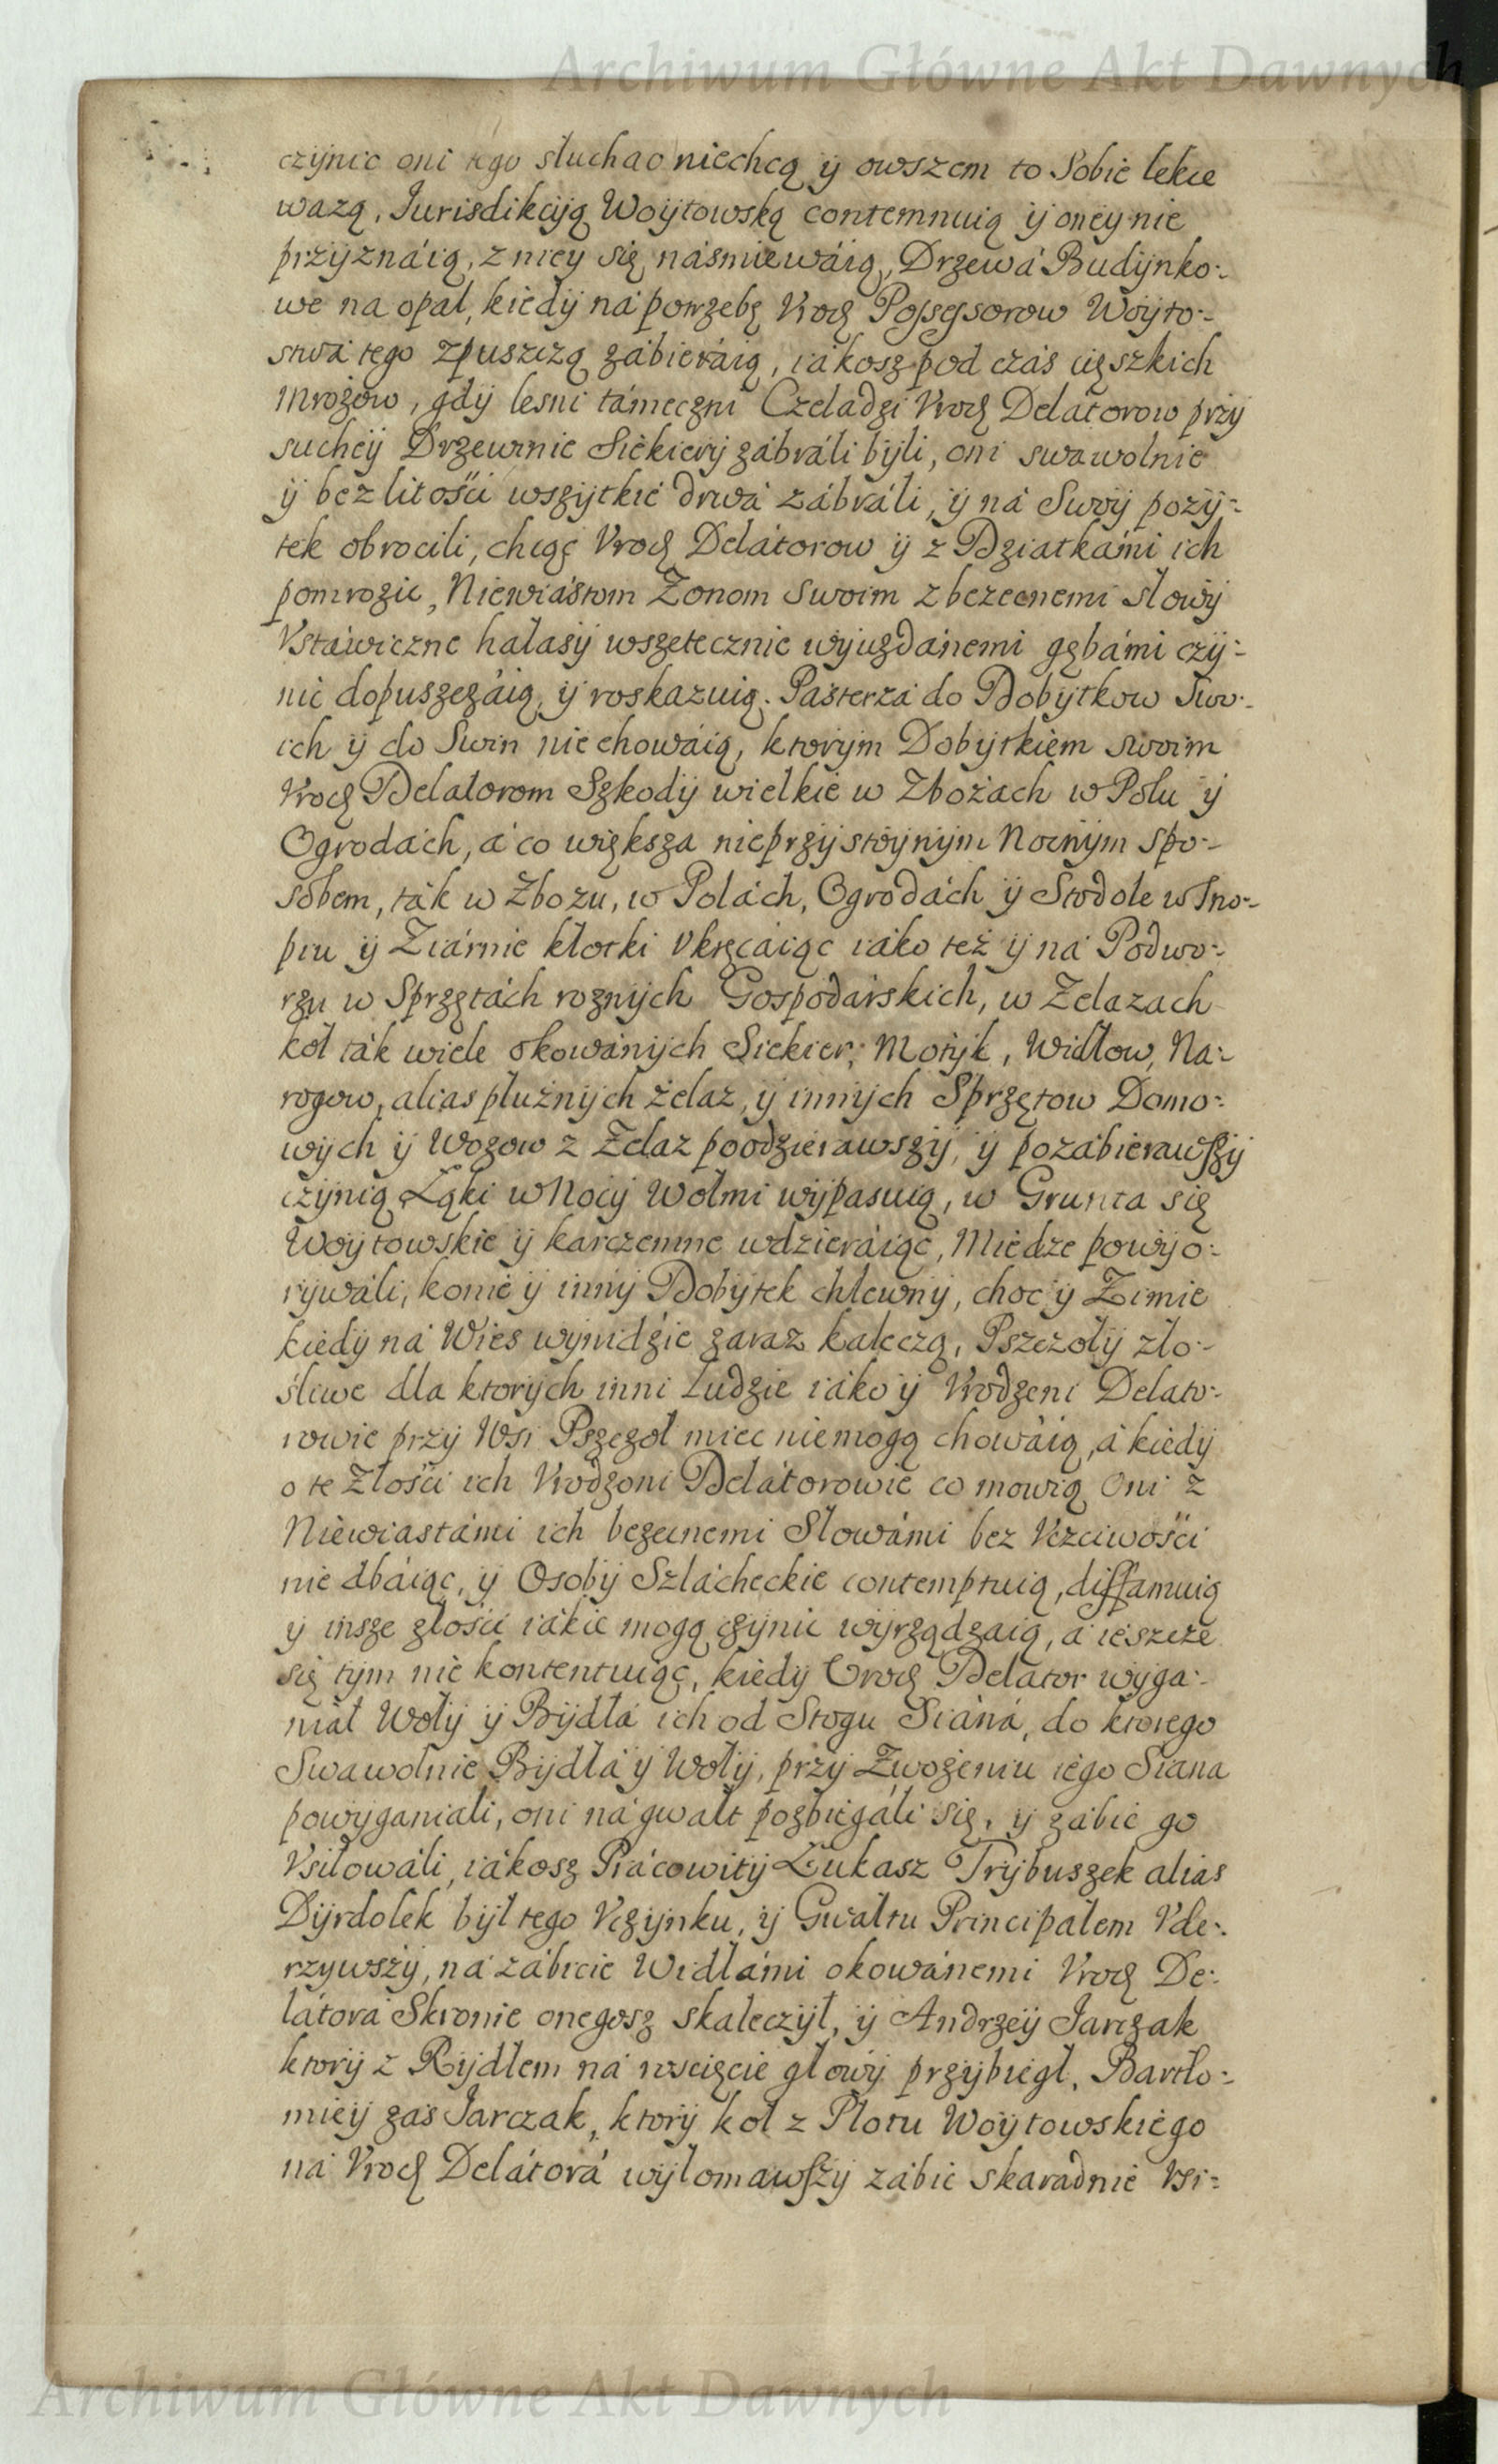 Archiwum Główne Akt Dawnych
czÿnic oni tego słuchac niechcą ÿ owszem to Sobie lekce
wazą, Jurisdikcÿą Woÿtowską contemnuią ÿ oneÿ nie
przÿznáią, z nieÿ się náśmiewáią, Drzewá Budÿnko:-
we na opał, kiedÿ ná potrzebę Vrodź Possessorow Woÿto:-
stwá tego zpuszczą zábieráią, iákosz pod czás cięszkich
mrozow, gdÿ leśni támeczni Czeladzi Vrodź Delatorow przÿ
sucheÿ Drzewinie Siekierÿ zábráli bÿli, oni swawolnie
ÿ bez litości wszÿtkie drwá zábráli, ÿ ná Swoÿ pozÿ:-
tek obrocili, chcąc Vrodź Delátorow ÿ z Dziatkámi ich
pomrozic, Niewiástom Zonom Swoim z bezecnemi słowÿ
Vstáwiczne hałasÿ wszetecznie wÿuzdánemi gębámi czÿ:-
nic dopuszczáią, ÿ roskazuią. Pásterzá do Dobÿtkow Swo:-
ich ÿ do Swin nie chowáią, ktorÿm Dobÿtkiem swoim
Vrodź Delatorom Szkodÿ wielkie w Zbożach w Polu ÿ
Ogrodách, á co większa nieprzÿstoÿnÿm Nocnÿm Spo:-
sobem, ták w Zbozu, w Polách, Ogrodách ÿ Stodole w Sno:-
piu ÿ Ziárnie kłotki Vkręcáiąc iáko też ÿ ná Podwo:-
rzu w Sprzętách roznÿch Gospodárskich, w Zelazach
koł ták wiele okowánÿch Siekier, Motÿk, Widłow, Na:-
rogow, alias płużnÿch żelaz, ÿ innÿch Sprzętow Domo:-
wÿch ÿ Wozow z Zelaz poodzierawszÿ, ÿ pozábierawszÿ
czÿnią Łąki w Nocÿ Wołmi wÿpasuią, w Grunta się
Woÿtowskie ÿ karczemne wdzieráiąc, Miedze powÿo:-
rÿwáli, konie ÿ innÿ Dobÿtek chlewnÿ, choc ÿ Zimie
kiedÿ ná Wies wÿnidźie zaraz kaleczą, Pszczołÿ zło:-
śliwe dla ktorÿch inni Ludzie iáko ÿ Vrodzeni Delato:-
rowie przÿ Wsi Pszczoł miec niemogą chowáią, á kiedÿ
o te Złości ich Vrodzoni Delátorowie co mowią Oni z
Niewiastámi ich bezecnemi Słowámi bez Vczciwości
nie dbáiąc, ÿ Osobÿ Szlácheckie contemptuią, diffamuią
ÿ insze złości iákie mogą czÿnic wÿrządzaią, á ieszcze
się tÿm nie kontentuiąc, kiedÿ Vrodź Delator wÿga:-
niał Wołÿ ÿ Bÿdłá ich od Stogu Siáná, do ktorego
Swawolnie Bÿdłá ÿ Wołÿ, przÿ Zwożeniu iego Siana
powÿganiali, oni ná gwałt pozbiegáli się, ÿ zábic go
Vsiłowáli, iákosz Prácowitÿ Łukasz Trÿbuszek alias
Dÿrdolek bÿł tego Vczÿnku, ÿ Gwałtu Principałem Vde:-
rzÿwszÿ, ná zábicie Widłámi okowánemi Vrodź De:-
látorá Skronie onegosz skaleczÿł, ÿ Andrzeÿ Jarczak
ktorÿ z Rÿdlem ná wscięcie głowÿ przÿbiegł, Bartło:-
mieÿ zas Jarczak, ktorÿ koł z Płotu Woÿtowskiego
ná Vrodź Delátorá wÿłomawszÿ zábic skaradnie Vsi:-
Archiwum Główne Akt Dawnych